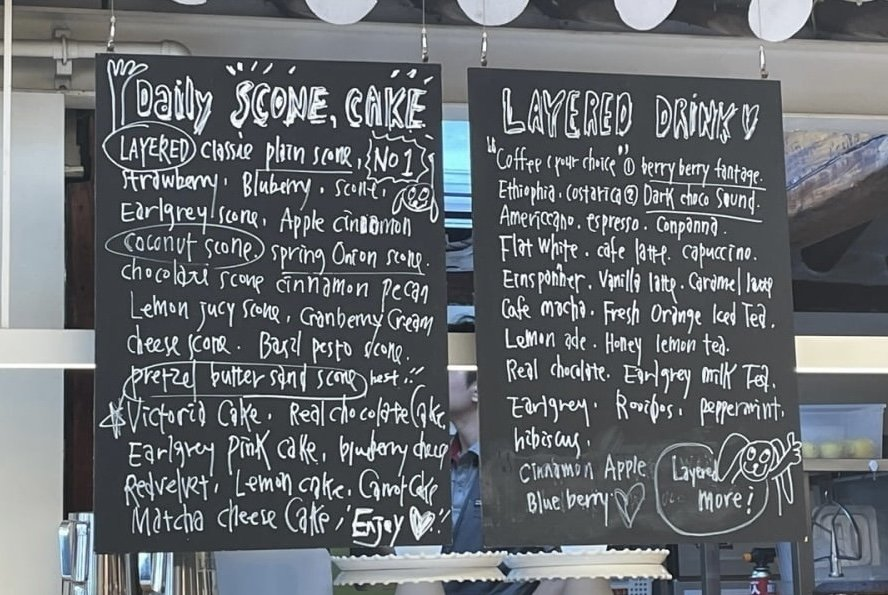 Daily SCONE, CAKE
LAYERED classic plain scone,
No 1
strawberry. Bluberry. scone,
Earlgrey scone, Apple cinnamon
coconut scone, spring Onion scone.
chocolate scone cinnamon pecan
Lemon jucy scone, Cranberry Cream
cheese scone. Basil pesto scone.
pretzel butter sand scone best!!
Victoria Cake. Real chocolate Cake,
Earlgrey pink cake, bluberry cheese
Redvelvet, Lemon cake, Carrot Cake
Matcha cheese Cake, "Enjoy"
LAYERED DRINK
"Coffee (your choice" ① berry berry fantage.
Ethiophia. costarica ② Dark choco Sound.
Americcano. espresso. Conpanna.
Flat White. cafe latte. capuccino.
Einspanner. Vanilla latte. Caramel latte
Cafe macha. Fresh Orange Iced Tea.
Lemon ade. Honey lemon tea.
Real chocolate. Earlgrey milk Tea.
Earlgrey. Rooibos. peppermint.
hibiscus.
Cinnamon Apple
Blue berry
Layered
more!